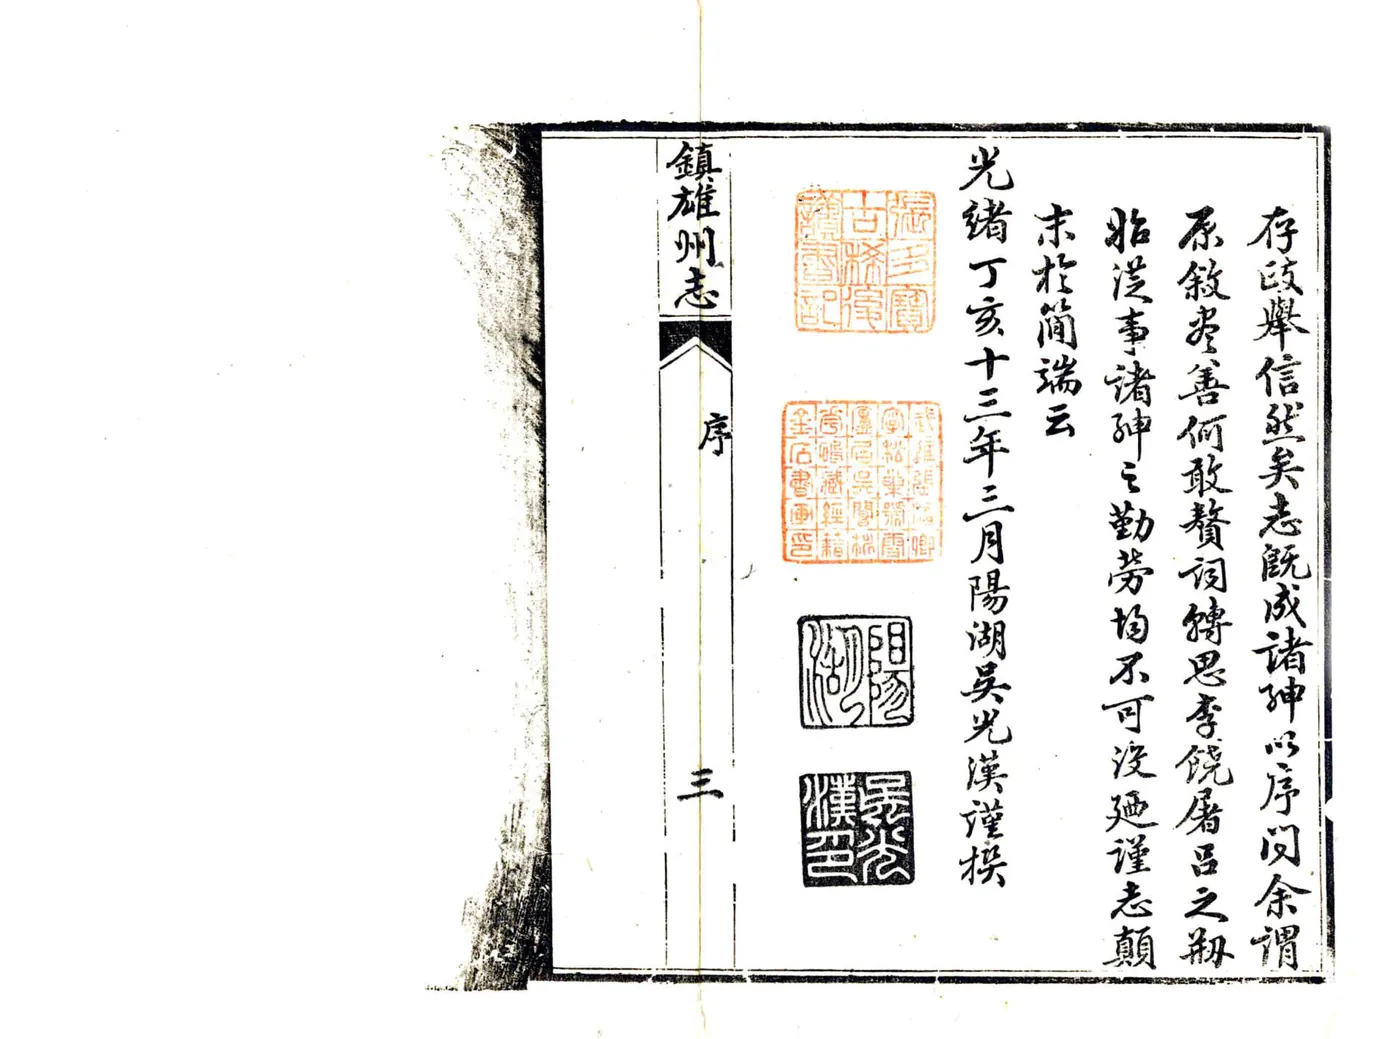 存歧舉信然矣志既成諸紳以序问余謂
原敘盡善何敢贅詞轉思李饒屠呂之剏
始從事諸紳之勤劳均不可沒廼謹志顛
末於簡端云
光緒丁亥十三年三月陽湖吳光漢謹撰
陽湖
吳光漢印
鎮雄州志
序
三